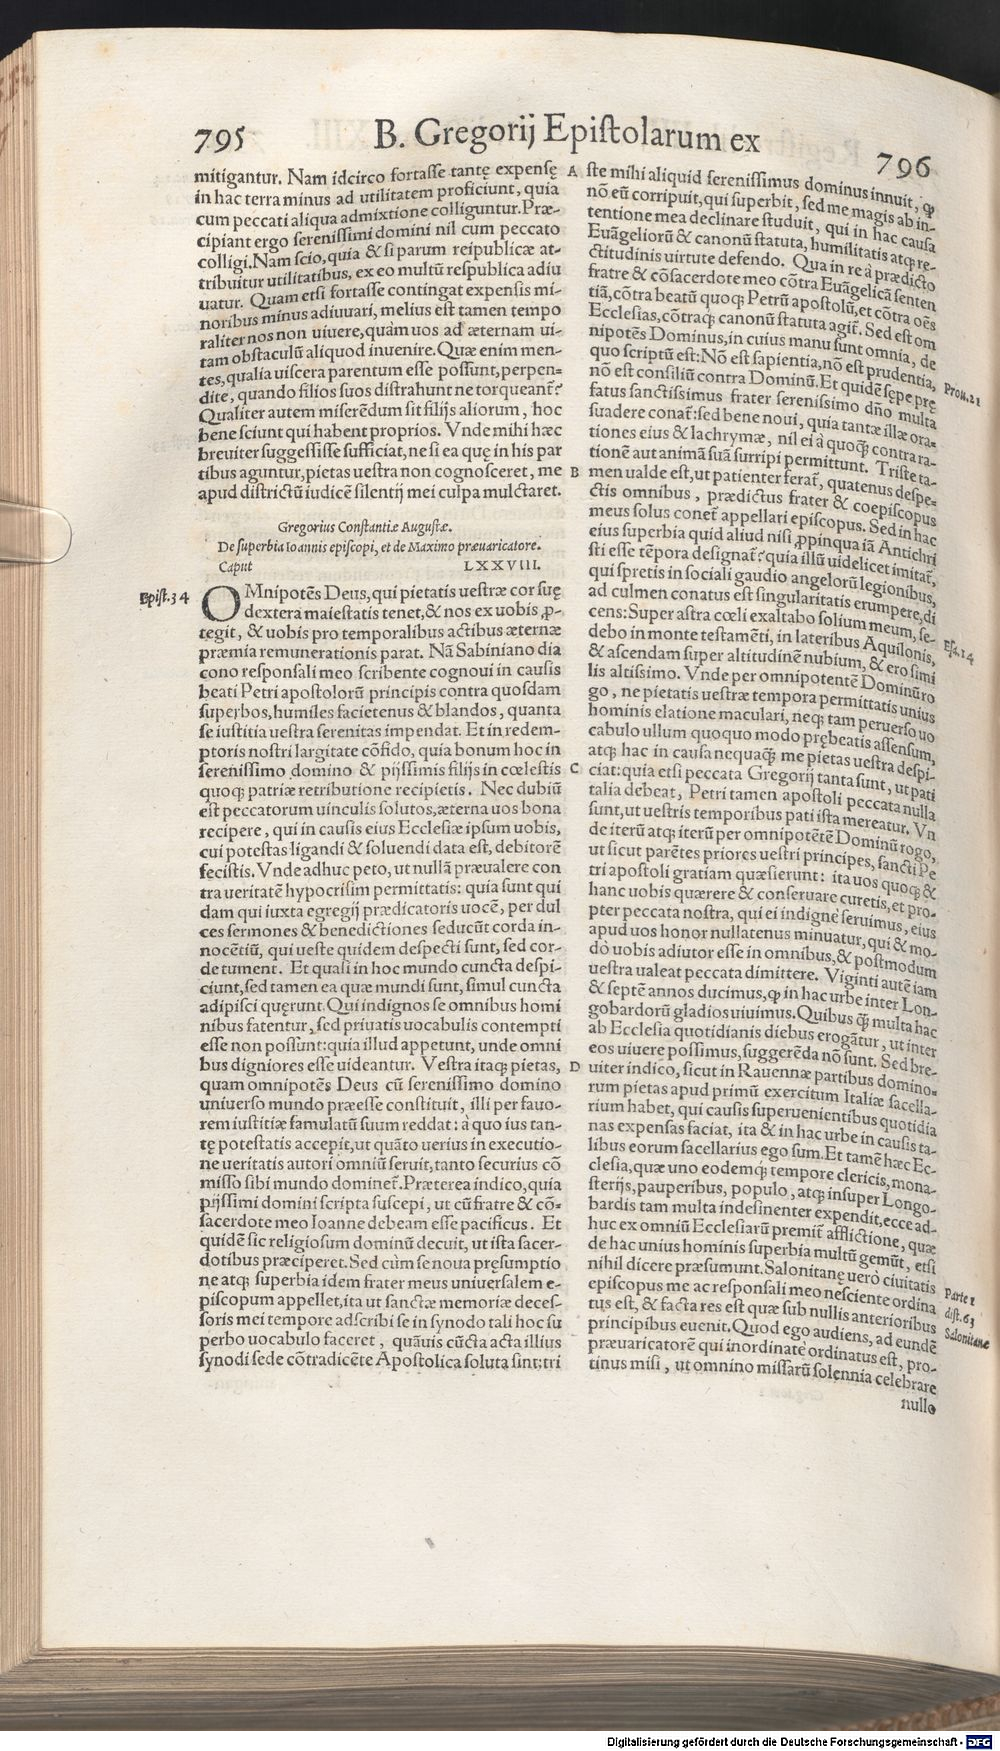 795
B. Gregorij Epistolarum ex
796
mitigantur. Nam idcirco fortasse tantę expensę
in hac terra minus ad utilitatem proficiunt, quia
cum peccati aliqua admixtione colliguntur. Præ-
cipiant ergo serenissimi domini nil cum peccato
colligi. Nam scio, quia & si parum reipublicæ at-
tribuitur utilitatibus, ex eo multũ respublica adiu
uatur. Quam etsi fortasse contingat expensis mi-
noribus minus adiuuari, melius est tamen tempo
raliter nos non uiuere, quàm uos ad æternam ui-
tam obstaculũ aliquod inuenire. Quæ enim men-
tes, qualia uiscera parentum esse possunt, perpen=
dite, quando filios suos distrahunt ne torqueant̃?
Qualiter autem miserẽdum sit filijs aliorum, hoc
bene sciunt qui habent proprios. Vnde mihi hæc
breuiter suggessisse sufficiat, ne si ea quę in his par
tibus aguntur, pietas uestra non cognosceret, me
apud districtũ iudicẽ silentij mei culpa mulctaret.
Gregorius Constantiæ Augustæ.
De superbia Ioannis episcopi, et de Maximo præuaricatore.
Caput LXXVIII.
Epist. 34
OMnipotẽs Deus, qui pietatis uestræ cor suę
dextera maiestatis tenet, & nos ex uobis ꝓ-
tegit, & uobis pro temporalibus actibus æternæ
præmia remunerationis parat. Nã Sabiniano dia
cono responsali meo scribente cognoui in causis
beati Petri apostolorũ principis contra quosdam
superbos, humiles facietenus & blandos, quanta
se iustitia uestra serenitas impendat. Et in redem-
ptoris nostri largitate cõfido, quia bonum hoc in
serenissimo domino & pijssimis filijs in cœlestis
quoq; patriæ retributione recipietis. Nec dubiũ
est peccatorum uinculis solutos, æterna uos bona
recipere, qui in causis eius Ecclesiæ ipsum uobis,
cui potestas ligandi & soluendi data est, debitorẽ
fecistis. Vnde adhuc peto, ut nullã præualere con
tra ueritatẽ hypocrisim permittatis: quia sunt qui
dam qui iuxta egregij prædicatoris uocẽ, per dul
ces sermones & benedictiones seducũt corda in-
nocẽtiũ, qui ueste quidem despecti sunt, sed cor-
de tument. Et quasi in hoc mundo cuncta despi-
ciunt, sed tamen ea quæ mundi sunt, simul cuncta
adipisci quęrunt. Qui indignos se omnibus homi
nibus fatentur, sed priuatis uocabulis contempti
esse non possunt: quia illud appetunt, unde omni
bus digniores esse uideantur. Vestra itaq; pietas,
quam omnipotẽs Deus cũ serenissimo domino
uniuerso mundo præesse constituit, illi per fauo-
rem iustitiæ famulatũ suum reddat: à quo ius tan-
tę potestatis accepit, ut quãto uerius in executio-
ne ueritatis autori omniũ seruit, tanto securius cõ
misso sibi mundo dominet̃. Præterea indico, quia
pijssimi domini scripta suscepi, ut cũ fratre & cõ=
sacerdote meo Ioanne debeam esse pacificus. Et
quidẽ sic religiosum dominũ decuit, ut ista sacer-
dotibus præciperet. Sed cùm se noua pręsumptio
ne atq; superbia idem frater meus uniuersalem e-
piscopum appellet, ita ut sanctæ memoriæ deces-
soris mei tempore adscribi se in synodo tali hoc su
perbo uocabulo faceret, quãuis cũcta acta illius
synodi sede cõtradicẽte Apostolica soluta sint: tri
A
B
C
D
ste mihi aliquid serenissimus dominus innuit, ꝙ
nõ eũ corripuit, qui superbit, sed me magis ab in-
tentione mea declinare studuit, qui in hac causa
Euãgeliorũ & canonũ statuta, humilitatis atq; re-
ctitudinis uirtute defendo. Qua in re à prædicto
fratre & cõsacerdote meo cõtra Euãgelicã senten
tiã, cõtra beatũ quoq; Petrũ apostolũ, et cõtra oẽs
Ecclesias, cõtraq; canonũ statuta agit̃. Sed est om
nipotẽs Dominus, in cuius manu sunt omnia, de
quo scriptũ est: Nõ est sapientia, nõ est prudentia,
nõ est consiliũ contra Dominũ. Et quidẽ sępe prę
fatus sanctissimus frater serenissimo dño multa
suadere conat̃: sed bene noui, quia tantæ illæ ora-
tiones eius & lachrymæ, nil ei à quoq̃ contra ra-
tionẽ aut animã suã surripi permittunt. Triste ta-
men ualde est, ut patienter ferat̃, quatenus despe=
ctis omnibus, prædictus frater & coepiscopus
meus solus conet̃ appellari episcopus. Sed in hac
eius superbia quid aliud nisi ꝓpinqua iã Antichri
sti esse tẽpora designat̃? quia illũ uidelicet imitat̃,
qui spretis in sociali gaudio angelorũ legionibus,
ad culmen conatus est singularitatis erumpere, di
cens: Super astra cœli exaltabo solium meum, se-
debo in monte testamẽti, in lateribus Aquilonis,
& ascendam super altitudinẽ nubium, & ero simi
lis altissimo. Vnde per omnipotentẽ Dominũ ro
go, ne pietatis uestræ tempora permittatis unius
hominis elatione maculari, neq; tam peruerso uo
cabulo ullum quoquo modo prębeatis assensum,
atq; hac in causa nequaq̃ me pietas uestra despi-
ciat: quia etsi peccata Gregorij tanta sunt, ut pati
talia debeat, Petri tamen apostoli peccata nulla
sunt, ut uestris temporibus pati ista mereatur. Vn
de iterũ atq; iterũ per omnipotẽtẽ Dominũ rogo,
ut sicut parẽtes priores uestri principes, sancti Pe
tri apostoli gratiam quæsierunt: ita uos quoq; &
hanc uobis quærere & conseruare curetis, et pro-
pter peccata nostra, qui ei indignè seruimus, eius
apud uos honor nullatenus minuatur, qui & mo-
dò uobis adiutor esse in omnibus, & postmodum
uestra ualeat peccata dimittere. Viginti autẽ iam
& septẽ annos ducimus, ꝙ in hac urbe inter Lon-
gobardorũ gladios uiuimus. Quibus q̃ multa hac
ab Ecclesia quotidianis diebus erogãtur, ut inter
eos uiuere possimus, suggerẽda nõ sunt. Sed bre-
uiter indico, sicut in Rauennæ partibus domino=
rum pietas apud primũ exercitum Italiæ sacella-
rium habet, qui causis superuenientibus quotidia
nas expensas faciat, ita & in hac urbe in causis ta-
libus eorum sacellarius ego sum. Et tamẽ hæc Ec-
clesia, quæ uno eodemq; tempore clericis, mona-
sterijs, pauperibus, populo, atq; insuper Longo-
bardis tam multa indesinenter expendit, ecce ad-
huc ex omniũ Ecclesiarũ premit̃ afflictione, quæ
de hac unius hominis superbia multũ gemũt, etsi
nihil dicere præsumunt. Salonitanę uerò ciuitatis
episcopus me ac responsali meo nesciente ordina
tus est, & facta res est quæ sub nullis anterioribus
principibus euenit. Quod ego audiens, ad eundẽ
præuaricatorẽ qui inordinatè ordinatus est, pro-
tinus misi, ut omnino missarũ solennia celebrare
nullo
Prou. 21
Esa. 14
Parte 1
dist. 63
Salonitanæ
Digitalisierung gefördert durch die Deutsche Forschungsgemeinschaft - DFG